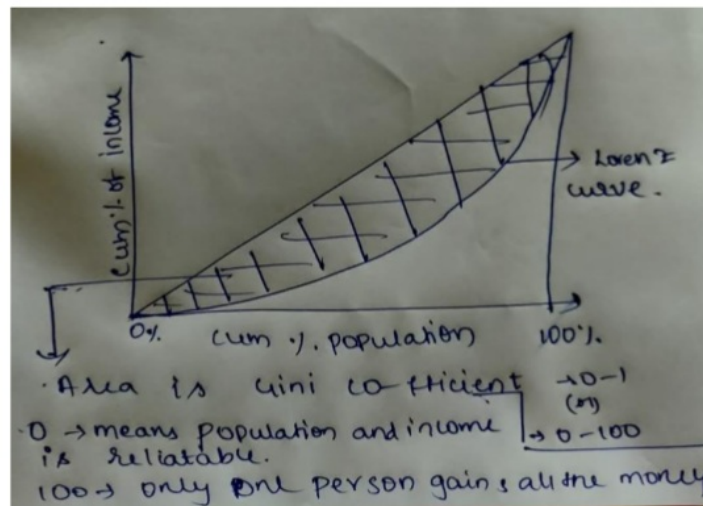 Cum % of income
Lorenz
curve.
0%
Cum %. population
100%.
. Area is Gini co-fficient → 0-1
(or)
→ 0-100
. 0 → means population and income
is reliatable.
100 → only one person gains all the money